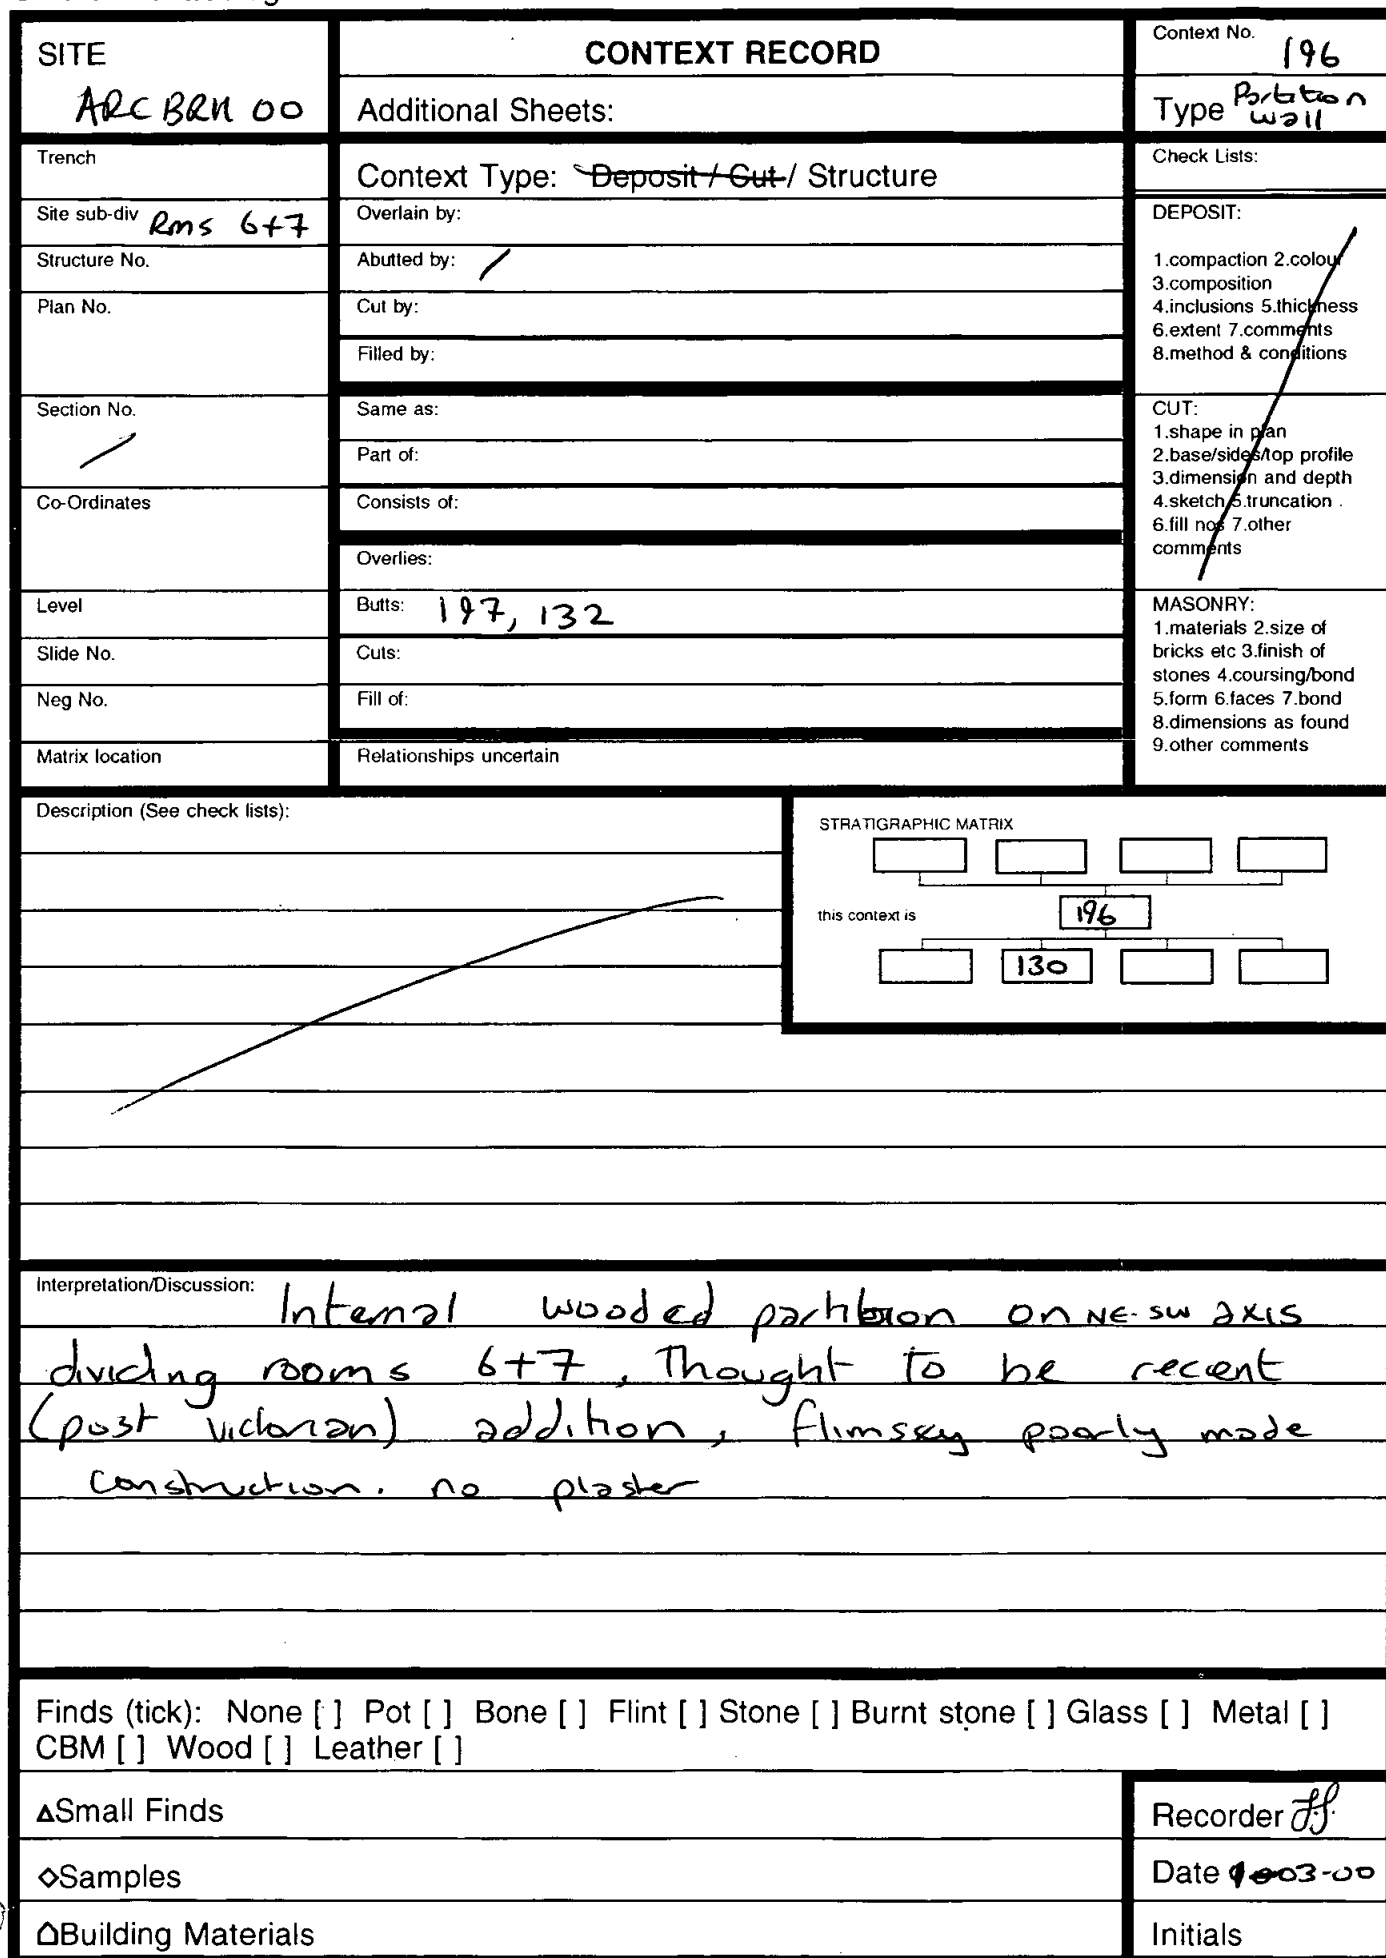 SITE
ARC BRH 00
CONTEXT RECORD
Additional Sheets:
Context No.
196
Type Partition
wall
Trench
Site sub-div Rms 6+7
Structure No.
Plan No.
Section No.
Co-Ordinates
Level
Slide No.
Neg No.
Matrix location
Context Type: Deposit / Cut / Structure
Overlain by:
Abutted by: /
Cut by:
Filled by:
Same as:
Part of:
Consists of:
Overlies:
Butts: 197, 132
Cuts:
Fill of:
Relationships uncertain
Check Lists:
DEPOSIT:
1.compaction 2.colour
3.composition
4.inclusions 5.thickness
6.extent 7.comments
8.method & conditions
CUT:
1.shape in plan
2.base/sides/top profile
3.dimension and depth
4.sketch 5.truncation .
6.fill nos 7.other
comments
MASONRY:
1.materials 2.size of
bricks etc 3.finish of
stones 4.coursing/bond
5.form 6.faces 7.bond
8.dimensions as found
9.other comments
Description (See check lists):
STRATIGRAPHIC MATRIX
this context is
196
130
Interpretation/Discussion: Internal wooded partition on NE-SW axis
dividing rooms 6+7, Thought to be recent
(post victorian) addition, flimsey poorly made
construction. no plaster
Finds (tick): None [ ] Pot [ ] Bone [ ] Flint [ ] Stone [ ] Burnt stone [ ] Glass [ ] Metal [ ]
CBM [ ] Wood [ ] Leather [ ]
△Small Finds
◇Samples
Building Materials
Recorder
Date 03-00
Initials